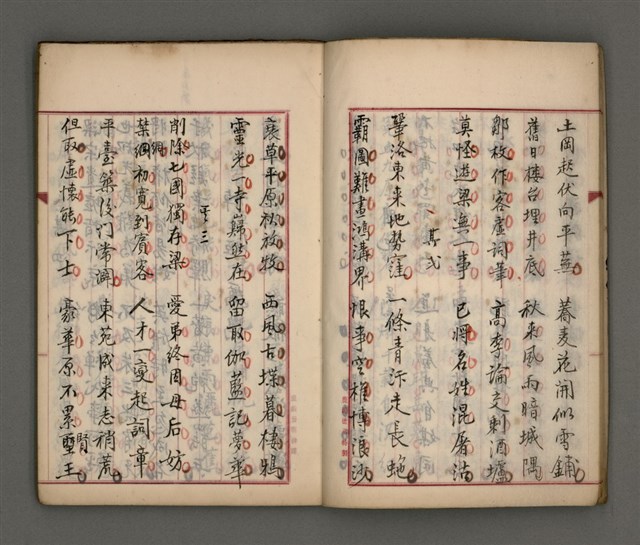 土岡起伏向平蕪　蕎麦花開似雪鋪
舊日樓台埋井底　秋来風雨暗城隅
鄒枚作客虛詞筆　高李論交剩酒壚
莫怪遊梁無一事　已將名姓混屠沽
其弍
鞏洛東来地勢窪　一條青汴走長蛇
霸圖難畫鴻溝界　恨事空椎博浪沙
衰草平原秋放牧　西風古堞暮棲鴉
靈光一寺巋然在　留取伽藍記夢華
其三
削除七國獨存梁　愛弟終因母后妨
禁網初寬到賓客　人才一変起詞章
平臺築後门常闢　東苑成来志稍荒
但取虛懷能下士　豪華原不累賢王